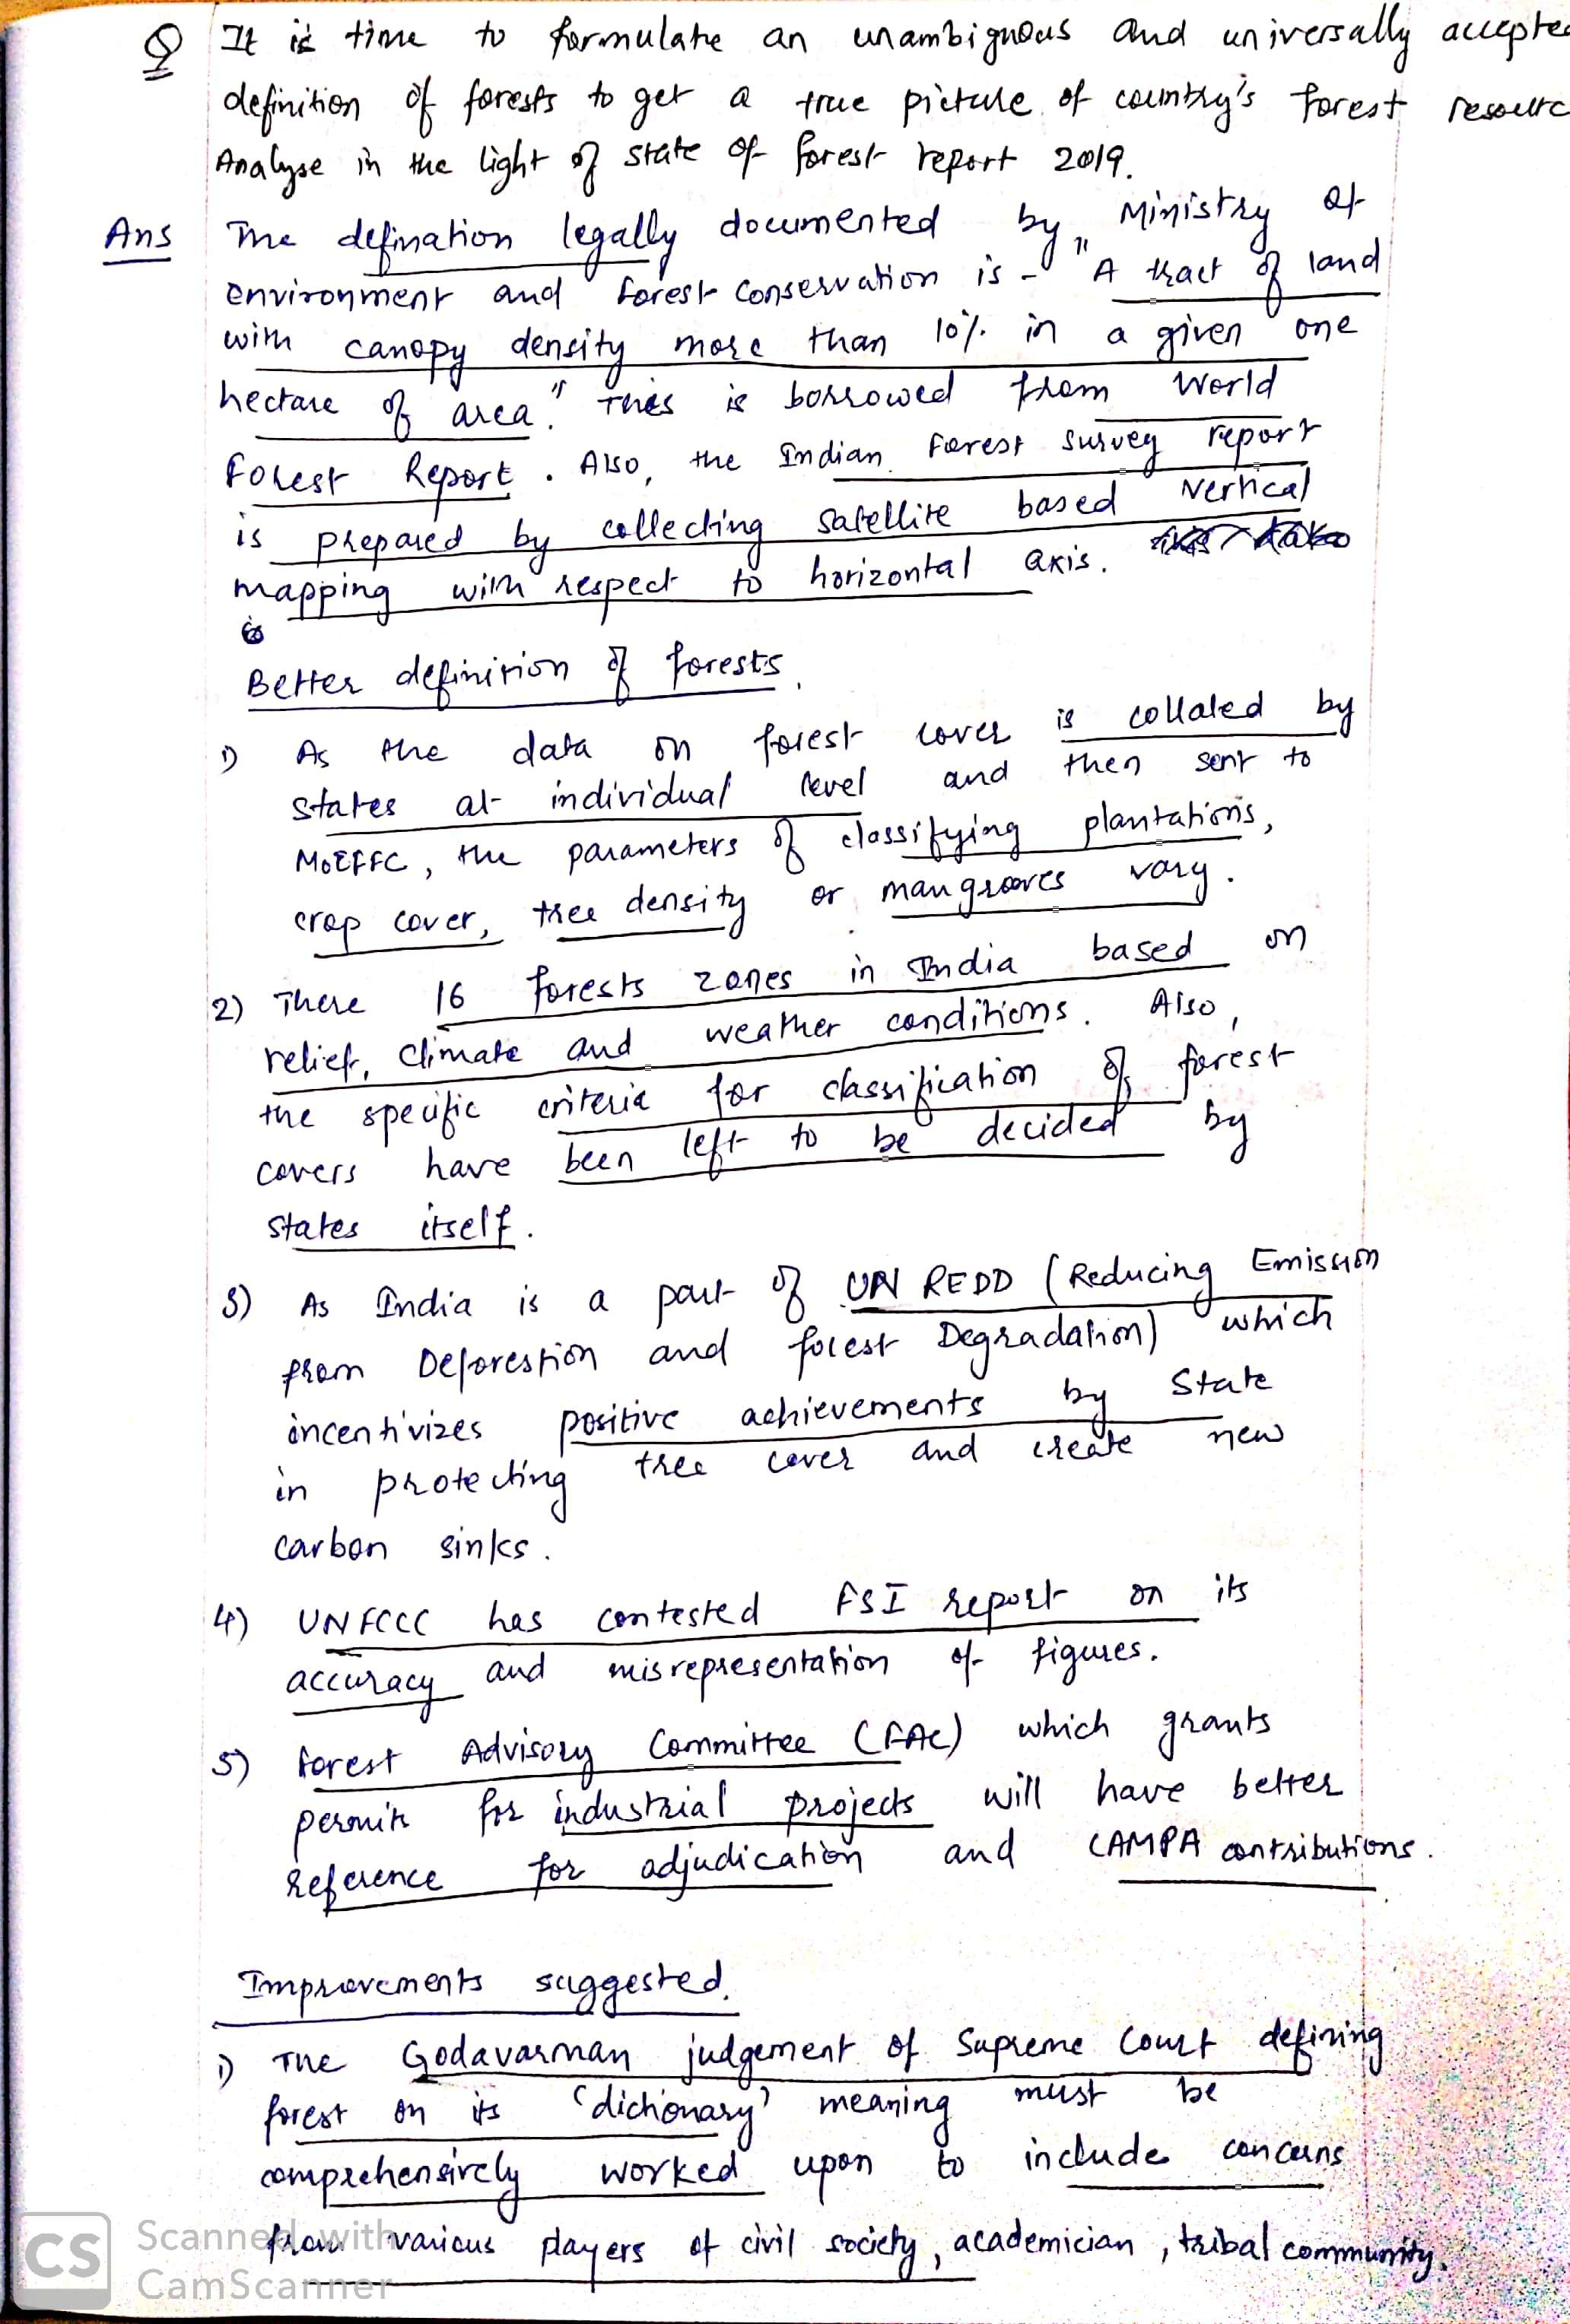 Q It is time to formulate an unambiguous and universally accepted
definition of forests to get a true picture of country's forest resourc
Analyse in the light of state of forest report 2019.
Ans The defination legally documented by Ministry of
environment and forest conservation is - "A tract of land
with canopy density more than 10% in a given one
hectare of area." This is borrowed from World
Forest Report. Also, the Indian forest survey report
is prepared by collecting satellite based vertical
mapping with respect to horizontal axis.
Better definition of forests
1) As the data on forest cover is collated by
states at individual level and then sent to
MoEFFC, the parameters of classifying plantations,
crop cover, tree density or mangrooves vary.
2) There 16 forests zones in India based on
relief, climate and weather conditions. Also,
the specific criteria for classification of forest
covers have been left to be decided by
states itself.
3) As India is a part of UN REDD (Reducing Emission
from Deforestion and forest Degradation) which
incentivizes positive achievements by State
in protecting tree cover and create new
carbon sinks.
4) UNFCCC has contested FSI report on its
accuracy and misrepresentation of figures.
5) Forest Advisory Committee (FAC) which grants
permits for industrial projects will have better
reference for adjudication and CAMPA contributions.
Improvements suggested.
1) The Godavarman judgement of Supreme Court defining
forest on its 'dictionary' meaning must be
comprehensively worked upon to include concerns
from various players of civil society, academician, tribal community.
CS Scanned with
CamScanner